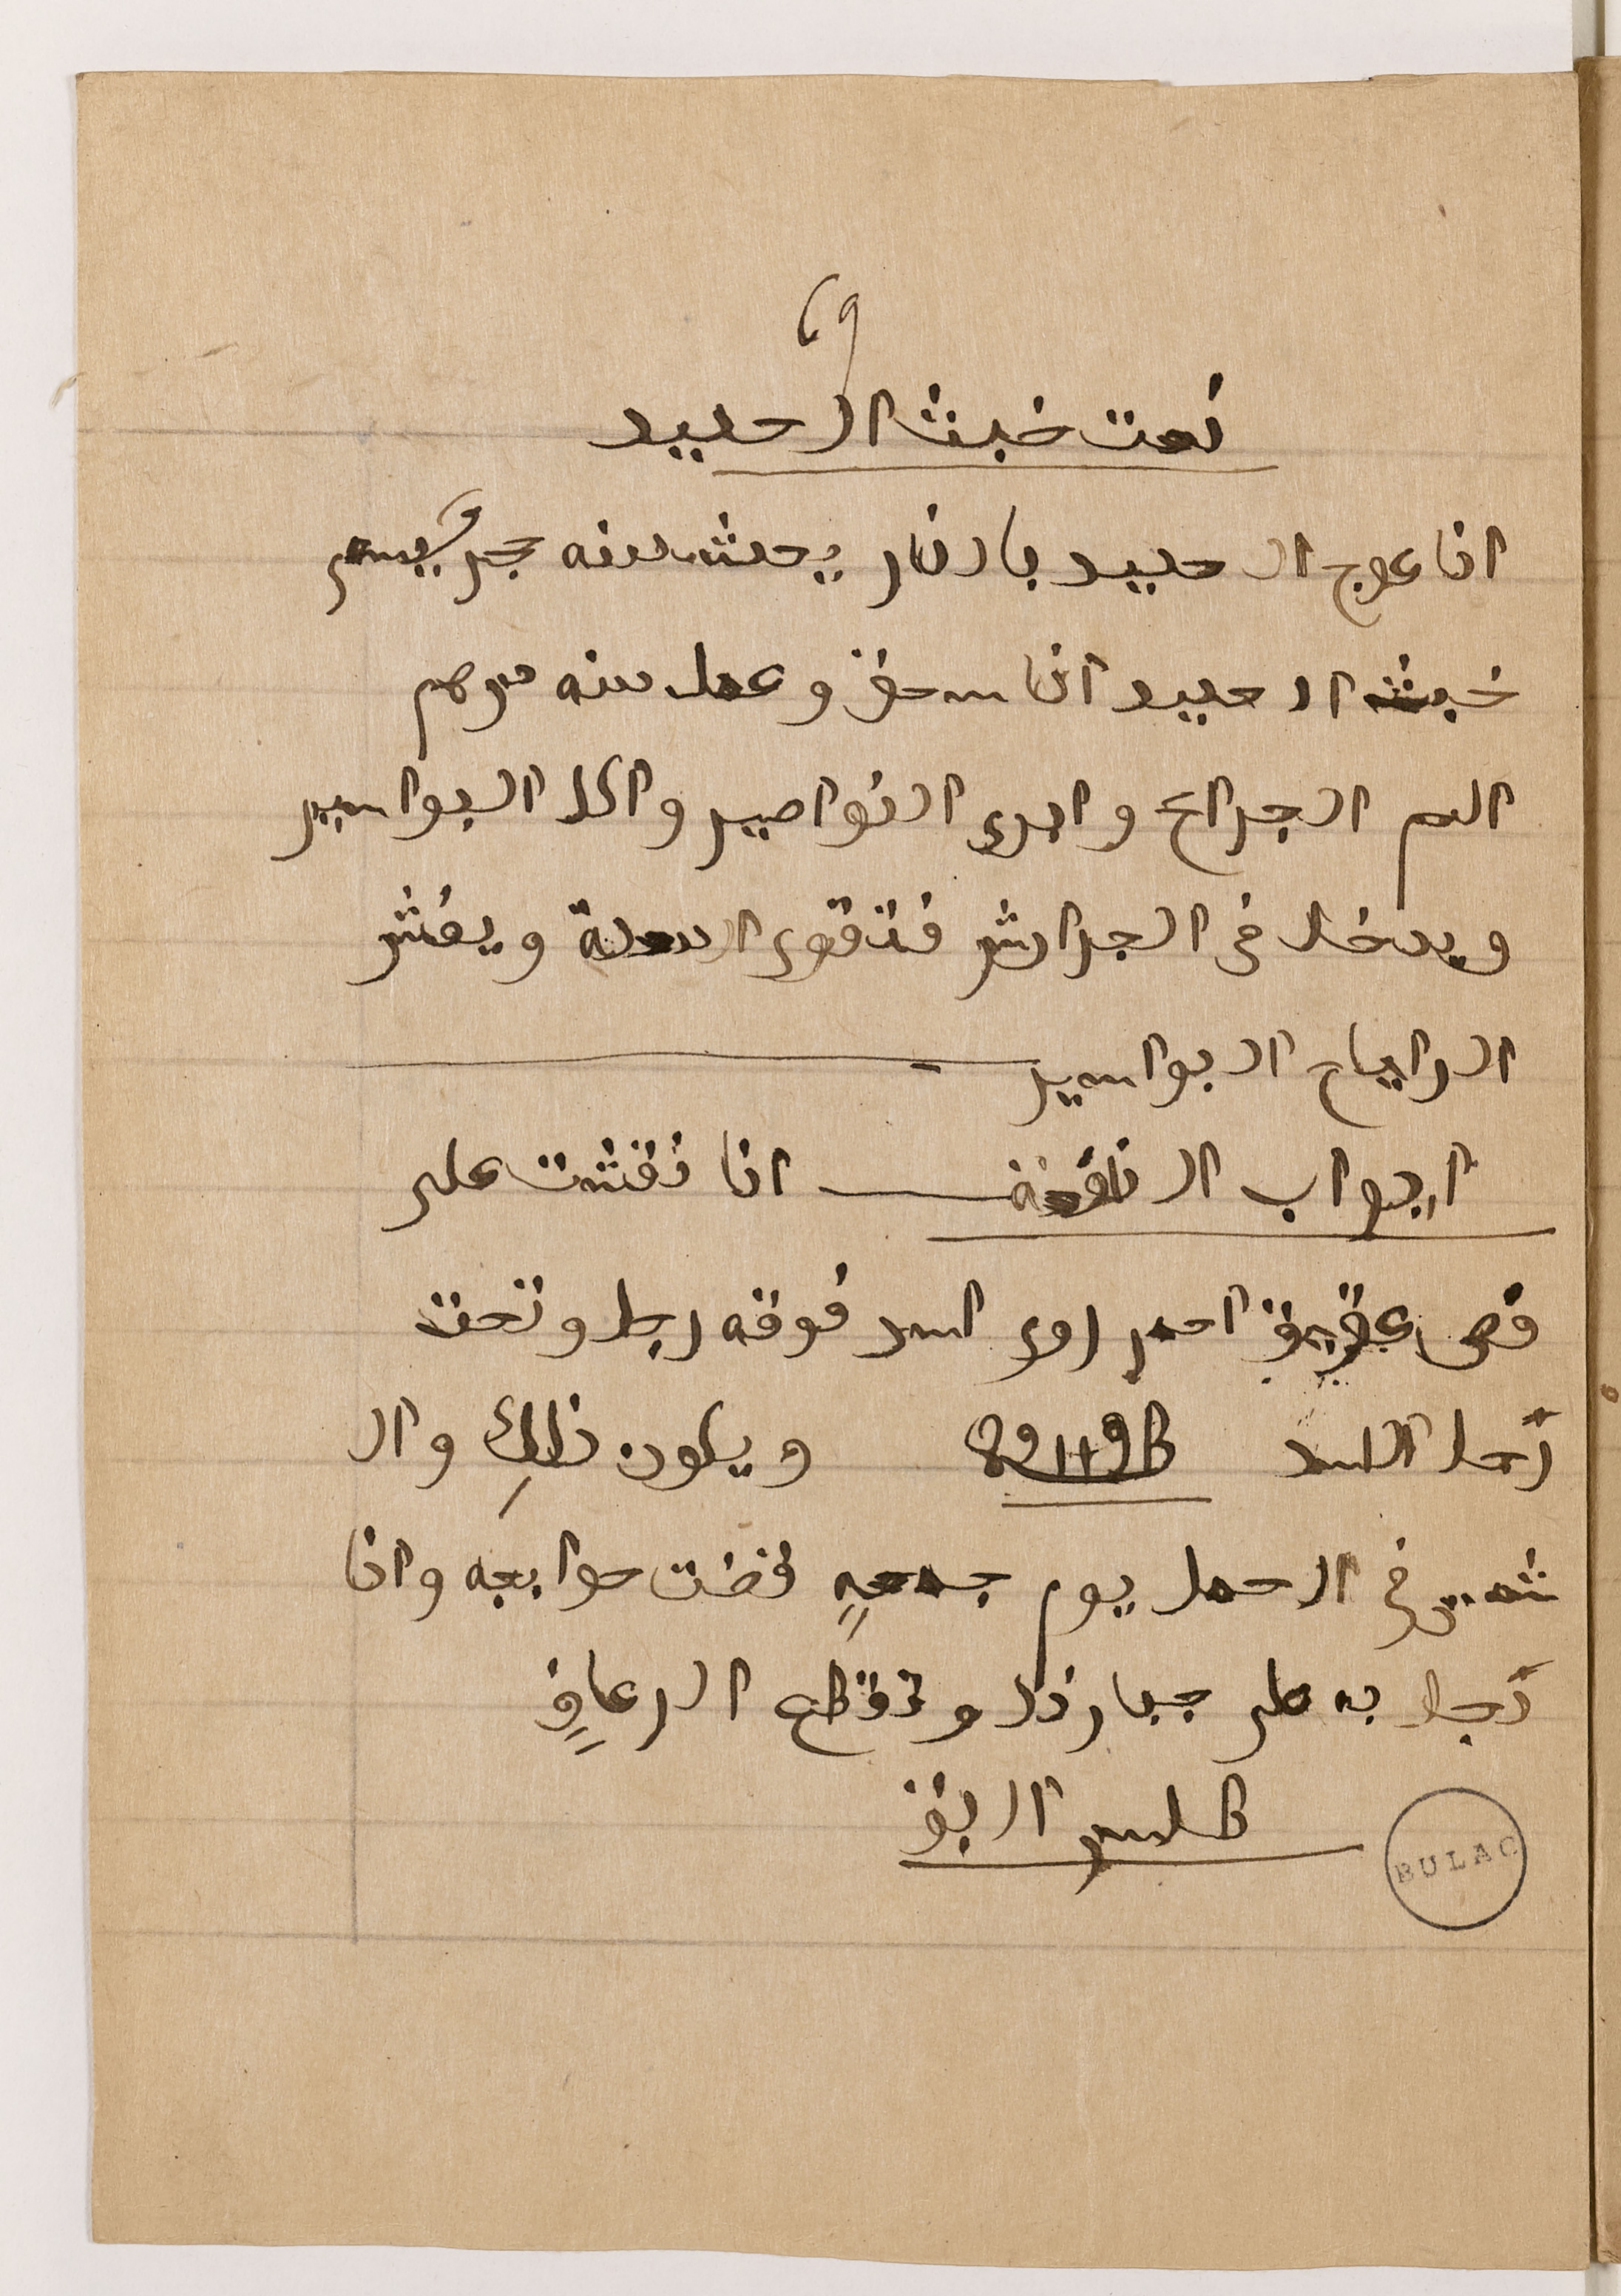 ٦٩
نعت خبث الحديد
اذا عولج الحديد بالنار يحدث منه حجر يسمى
خبث الحديد اذا سحق وعمل منه مرهم
الحم الجراح وابرى النواصير واكل البواسير
ويدخل في الجوارش فتقوى المعدة وينفش
الرياح البواسير
ابواب النافعة انا نقشت على
فص عقيق احمر راى اسد فوقه ربط وتحت
رجل الاسد ويكون ذلك وال
شمس في الحمل يوم جمعه قضت حوايجه واذا
دخل به على جبار ذل وتقطع الرعاف
طلسم البق
BULAC